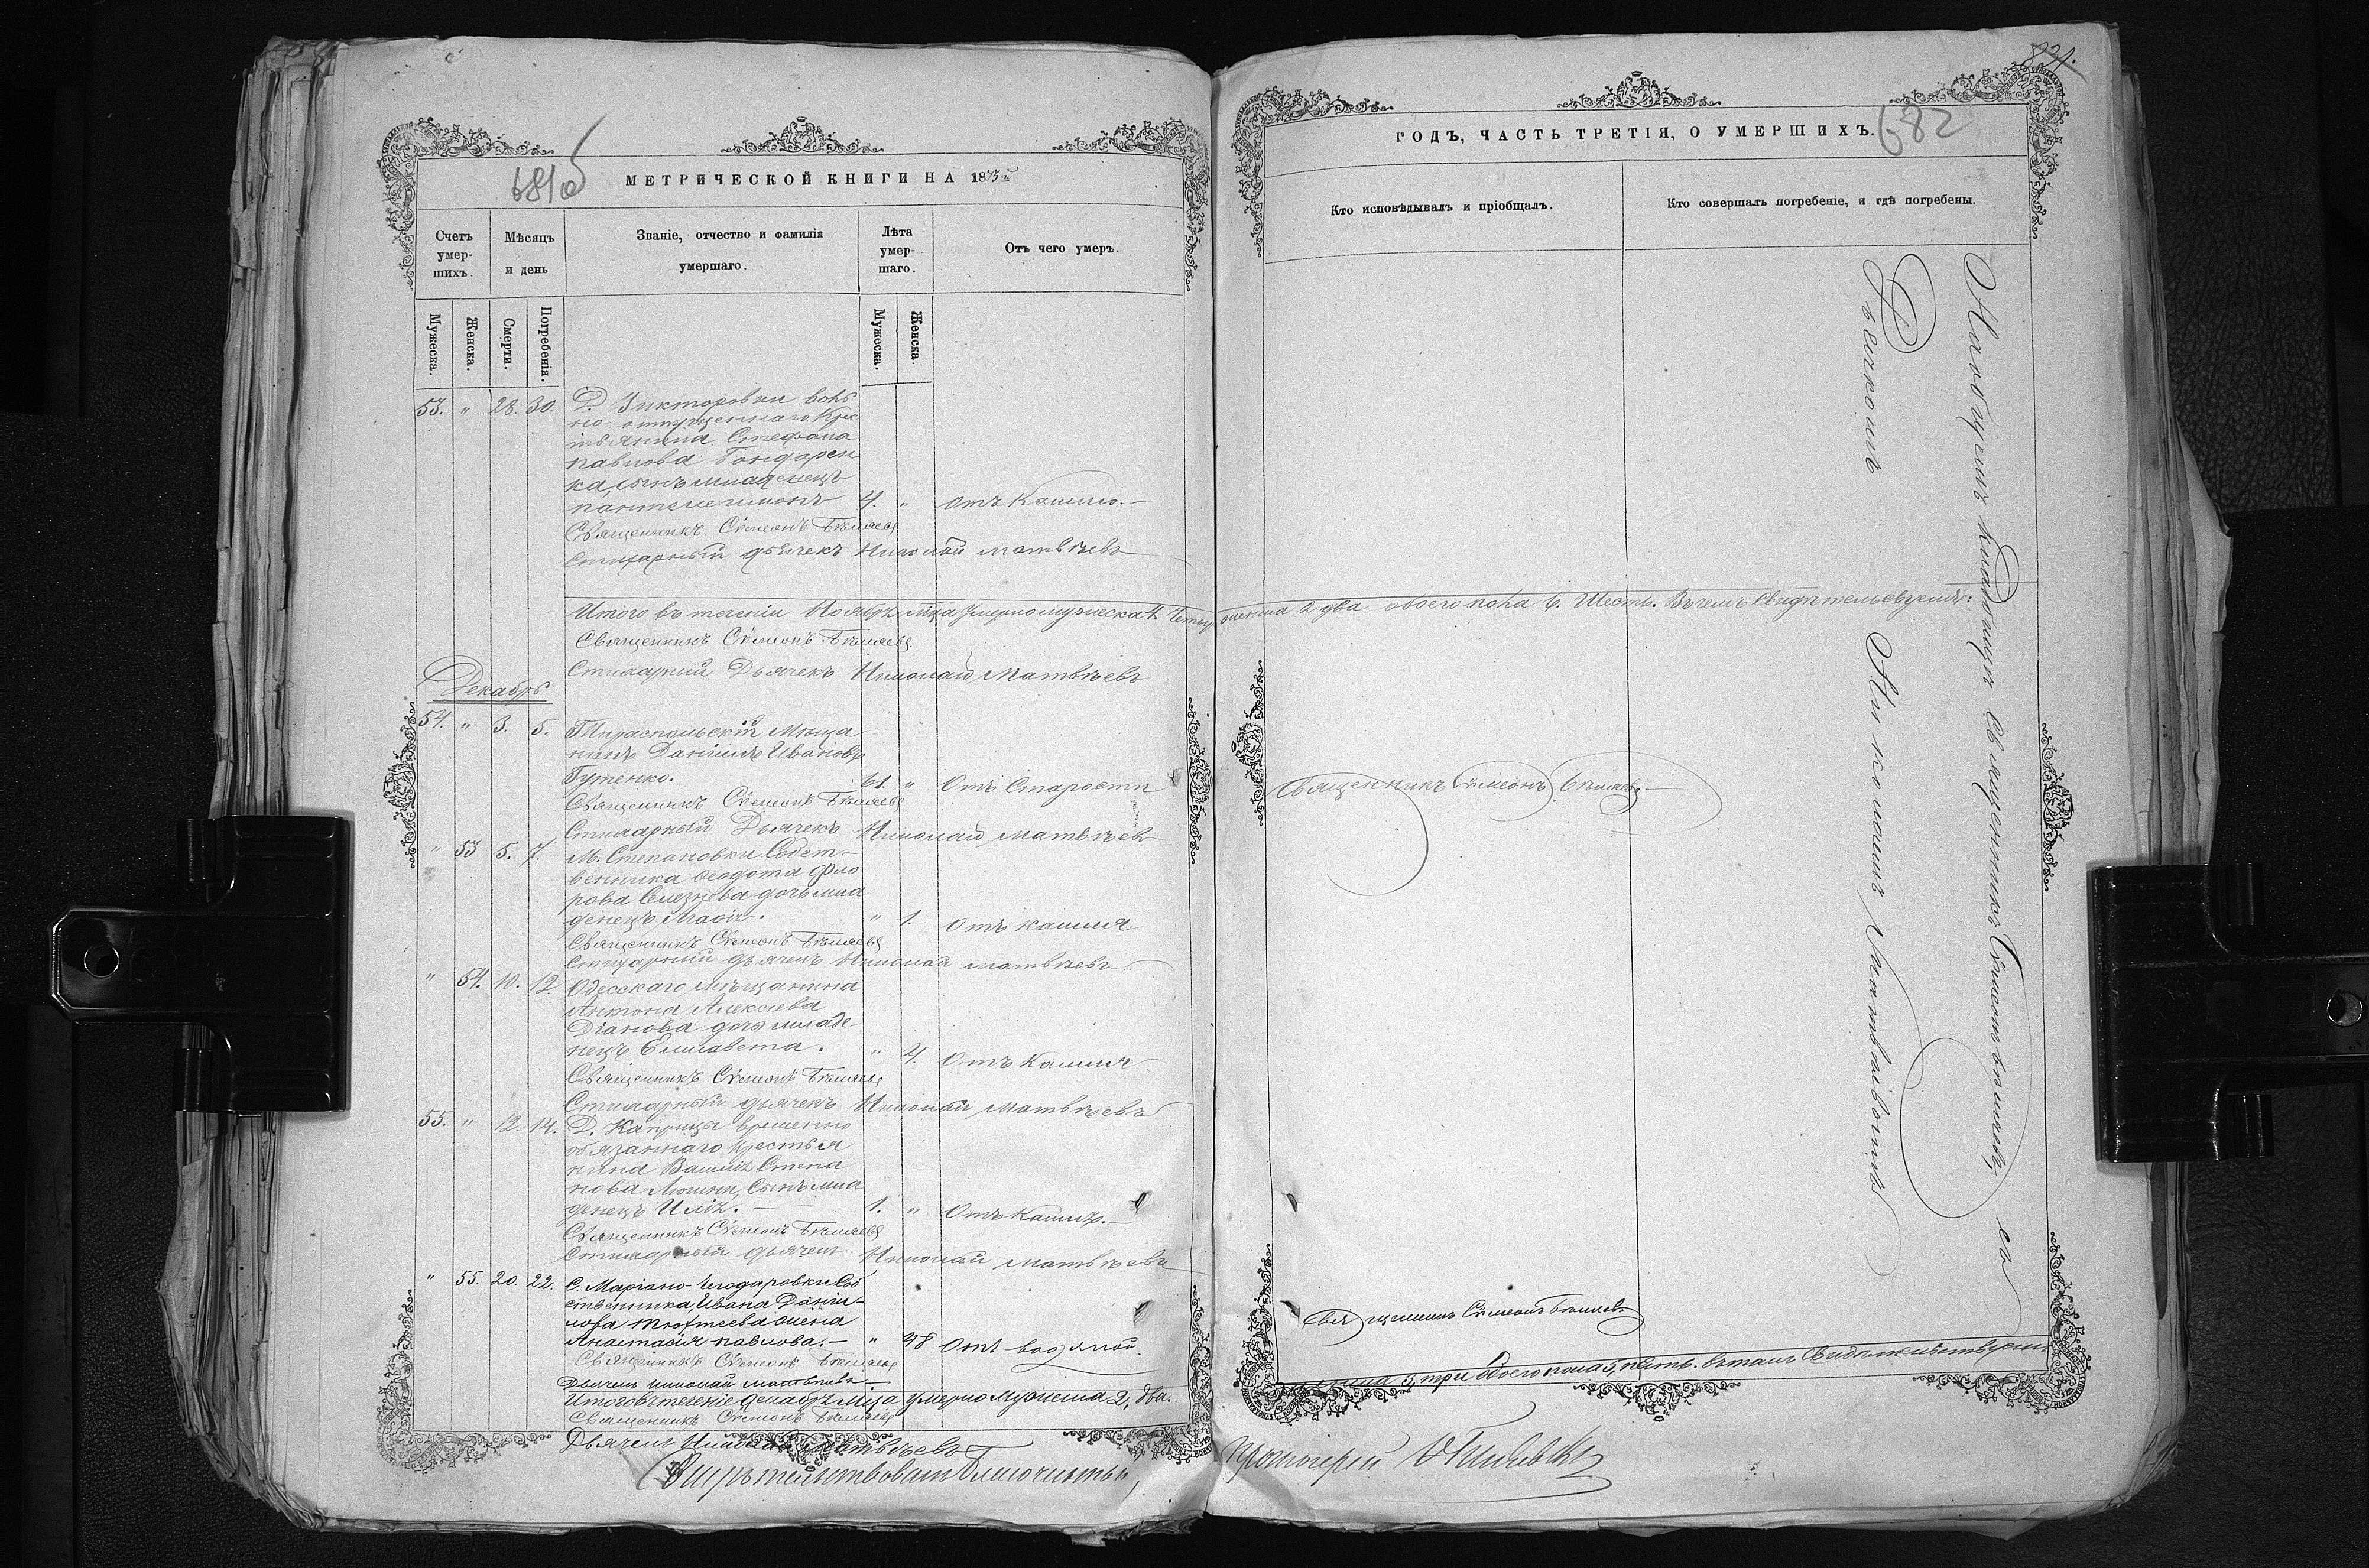 681об
МЕТРИЧЕСКОЙ КНИГИ НА 1875й
Счетъ умер-шихъ.
Мѣсяцъ и день
Званіе, отчество и фамилія умершаго.
Лѣта умер-шаго.
Отъ чего умеръ.
Мужеска.
Женска.
Смерти.
Погребенія.
Мужеска.
Женска.
53. " 28. 30. Д. Викторовки воль
но-отпущеннаго Крес
тьянина Стефана
павлова Бондарен
ка, сынъ младенецъ
пантелеимонъ 4. " отъ Кашлю.
Священникъ Сѵмеонъ Бѣляевъ
Стихарный дьячекъ Николай матвѣевъ
Итого въ теченіи Ноябрѣ мѣца умерло мужеска 4. четыре женска 2 два обоего пола 6. Шесть. Въ чемъ свидѣтельствуемъ:
Священникъ Сѵмеонъ Бѣляевъ
Стихарный Дьячекъ Николай Матвѣевъ
Декабрь
54. " 3. 5. Тираспольскій Мѣща
нинъ Даніилъ Ивановъ
Гутенко. 61. " Отъ Старости
Священникъ Сѵмеонъ Бѣляевъ
Стихарный Дьячекъ Николай матвѣевъ
" 53 5. 7. М. Степановки Собст-
венника Ѳеодота Фло
рова Селезнева дочь мла
денецъ Марія. " 1. Отъ кашля
Священникъ Сѵмеонъ Бѣляевъ
Стихарный дьячекъ Николай матвѣевъ
" 54. 10. 12. Одесскаго мѣщанина
Антона Алексѣева
Діанова дочь младе
нецъ Елисавета. " 4. Отъ Кашля
Священникъ Сѵмеонъ Бѣляевъ
Стихарный дьячекъ Николай Матвѣевъ
55. " 12. 14. Д. Каприцы временно
обязаннаго крестья
нина Василія Степа
нова сынъ мла
денецъ Илія. 1. " Отъ Кашля.
Священникъ Сѵмеонъ Бѣляевъ
Стихарный дьячекъ Николай матвѣевъ
" 55. 20. 22. С. Маріано-Чегодаровки Соб
ственника, Ивана Даніи-
лова жена
Анастасія павлова. " 48 Отъ водяной.
Священникъ Сѵмеонъ Бѣляевъ
Дьячекъ Николай матвѣевъ
Итого въ теченіе декабрѣ мѣца умерло Мужеска 2, два.
Священникъ Сѵмеонъ Бѣляевъ
Дьячекъ Николай матвѣевъ
Свидѣтельствовалъ Благочинный,
831.
682
ГОДЪ, ЧАСТЬ ТРЕТІЯ, О УМЕРШИХЪ.
Кто исповѣдывалъ и пріобщалъ.
Кто совершалъ погребеніе, и гдѣ погребены.
Священникъ Сѵмеонъ Бѣляевъ
На общемъ кладбищѣ Священникъ Сѵмеонъ Бѣляевъ, съ
Дьячкомъ Николаемъ Матвѣевымъ
Священникъ Сѵмеонъ Бѣляевъ
женска 3, три обоего пола 5, пять. въ чемъ Свидѣтельствуемъ
протоіерей